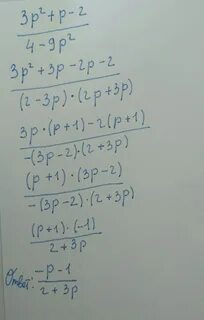 3p² + p - 2
4 - 9p²
3p² + 3p - 2p - 2
(2 - 3p) · (2p + 3p)
3p · (p + 1) - 2(p + 1)
-(3p - 2) · (2 + 3p)
(p + 1) · (3p - 2)
-(3p - 2) · (2 + 3p)
(p + 1) · (-1)
2 + 3p
Ответ: -p - 1
2 + 3p